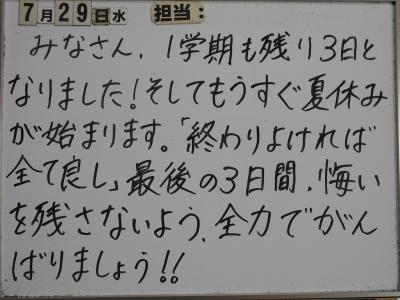 7月29日水 担当:
みなさん、1学期も残り3日と
なりました!そしてもうすぐ夏休み
が始まります。「終わりよければ
全て良し」最後の3日間、悔い
を残さないよう、全力でがん
ばりましょう!!